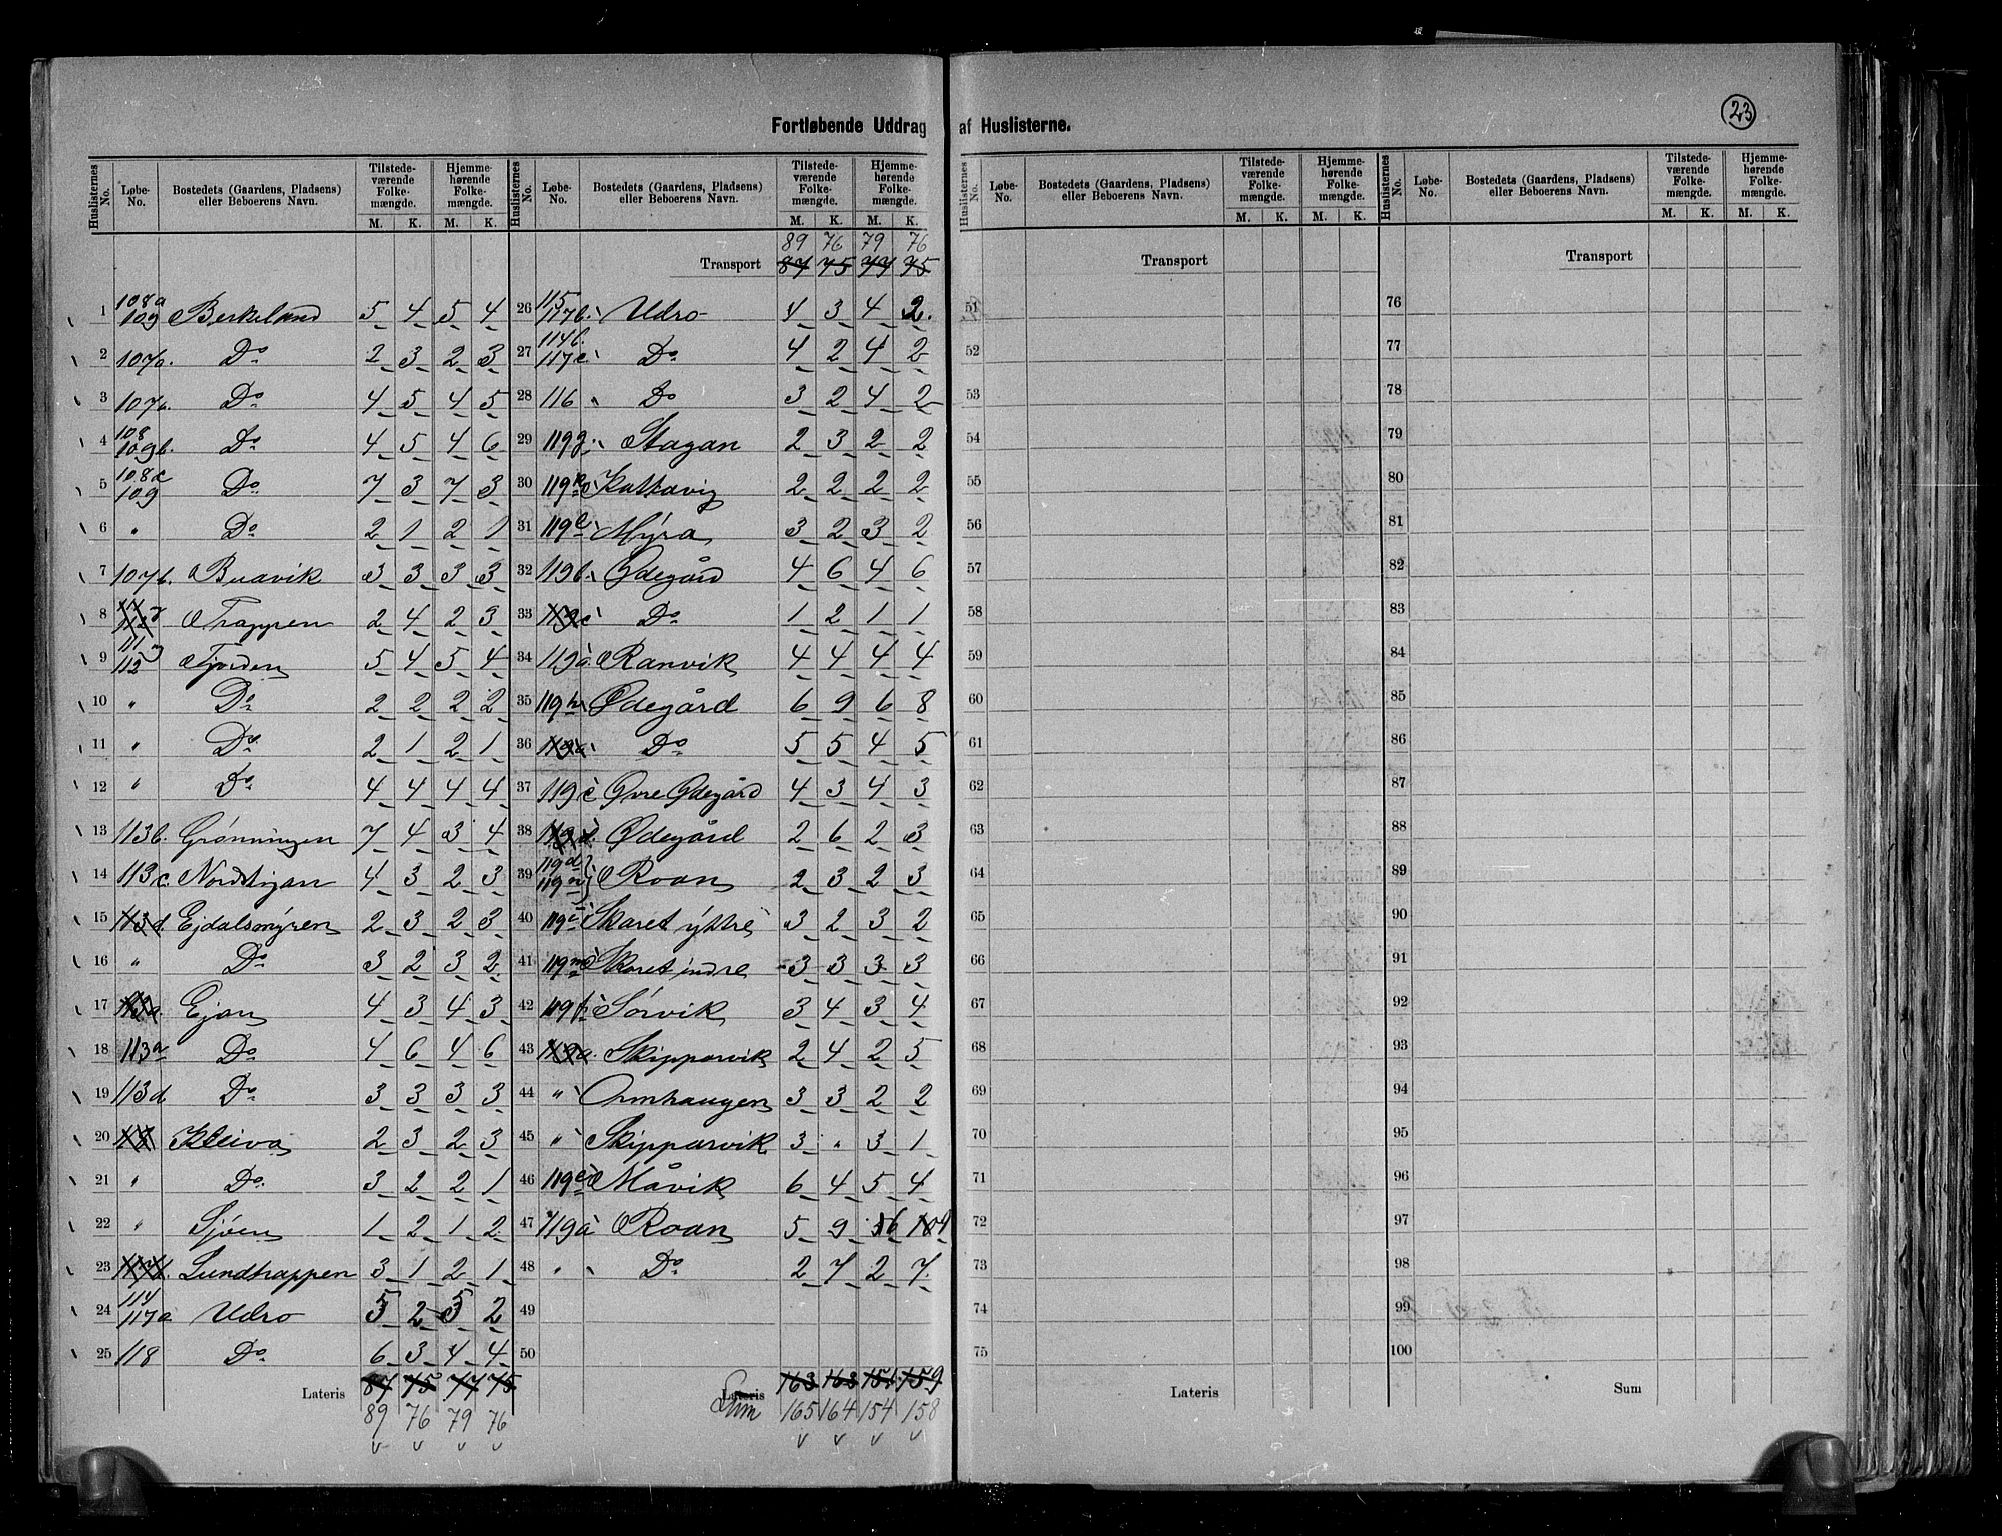 23
Fortløbende Uddrag af Huslisterne.
Huslisternes No. Løbe-No. Bostedets (Gaardens, Pladsens) eller Beboerens Navn. Tilstedeværende Folkemængde. M. K. Hjemmehørende Folkemængde. M. K.
1 108a 109 Berkeland 5 4 5 4
2 107b. Do 2 3 2 3
3 107b. Do 4 5 4 5
4 108 109b. Do 4 5 4 6
5 108c 109 Do 7 3 7 3
6 " Do 2 1 2 1
7 107b. Buavik 3 3 3 3
8 Trappen 2 4 2 3
9 111 112 Fjorden 5 4 5 4
10 " Do 2 2 2 2
11 " Do 2 1 2 1
12 " Do 4 4 4 4
13 113b. Grønningen 7 4 3 4
14 113c. Nordstigan 4 3 2 3
15 113d. Ejdalsmýren 2 3 2 3
16 " Do 3 2 3 2
17 Ejan 4 3 4 3
18 113a Do 4 6 4 6
19 113d Do 3 3 3 3
20 118 Kleiva 2 3 2 3
21 " Do 3 2 2 1
22 " Sjøen 1 2 1 2
23 Lundtrappen 3 1 2 1
24 114 117a Udro 5 2 5 2
25 118 Do 6 3 4 4
Lateris 87 75 77 75
89 76 79 76
Huslisternes No. Løbe-No. Bostedets (Gaardens, Pladsens) eller Beboerens Navn. Tilstedeværende Folkemængde. M. K. Hjemmehørende Folkemængde. M. K.
89 76 79 76
Transport 87 75 77 75
26 115 117b. Udro 4 3 4 2.
27 114b. 117c Do 4 2 4 2
28 116 Do 3 2 4 2
29 119g. Stagan 2 3 2 2
30 119k Kattavig 2 2 2 2
31 119l Mýra 3 2 3 2
32 119b. Ødegård 4 6 4 6
33 119c Do 1 2 1 1
34 119a Ranvik 4 4 4 4
35 119h Ødegård 6 9 6 8
36 119a Do 5 5 4 5
37 119c Øvre Ødegård 4 3 4 3
38 119d. Ødegård 2 6 2 3
39 119d 119n Roan 2 3 2 3
40 119i Skaret ýttre 3 2 3 2
41 119m Skaret indre 3 3 3 3
42 119f Sørvik 3 4 3 4
43 119a. Skipparvik 2 4 2 5
44 " Ormhaugen 3 3 2 2
45 " Skipparvik 3 " 3 1
46 119e Måvik 6 4 5 4
47 119a Roan 5 9
48 " Do 2 7 2 7.
49
50
Lateris 163 163 151 159
Sum 165 164 154 158
Huslisternes No. Løbe-No. Bostedets (Gaardens, Pladsens) eller Beboerens Navn. Tilstedeværende Folkemængde. M. K. Hjemmehørende Folkemængde. M. K.
Transport
51
52
53
54
55
56
57
58
59
60
61
62
63
64
65
66
67
68
69
70
71
72
73
74
75
Lateris
Huslisternes No. Løbe-No. Bostedets (Gaardens, Pladsens) eller Beboerens Navn. Tilstedeværende Folkemængde. M. K. Hjemmehørende Folkemængde. M. K.
Transport
76
77
78
79
80
81
82
83
84
85
86
87
88
89
90
91
92
93
94
95
96
97
98
99
100
Sum